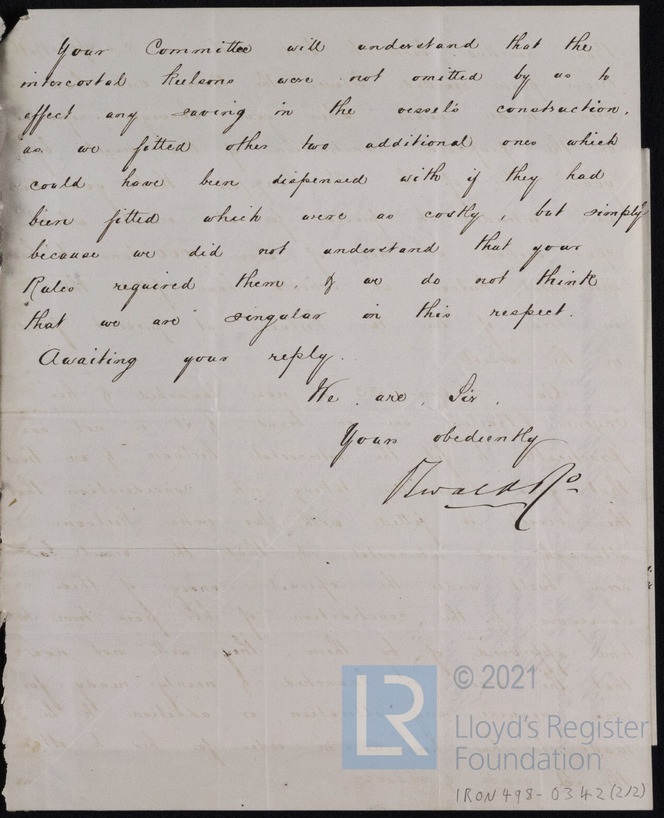 Your Committee will understand that the
intercostal keelsons were not omitted by us to
effect any saving in the vessel's construction,
as we fitted other two additional ones which
could have been dispensed with if they had
been fitted which were as costly, but simply
because we did not understand that your
Rules required them, & we do not think
that we are singular in this respect.
Awaiting your reply.
We are, Sir,
Yours obediently
LR
© 2021
Lloyd's Register
Foundation
IRON498-0342(2/2)